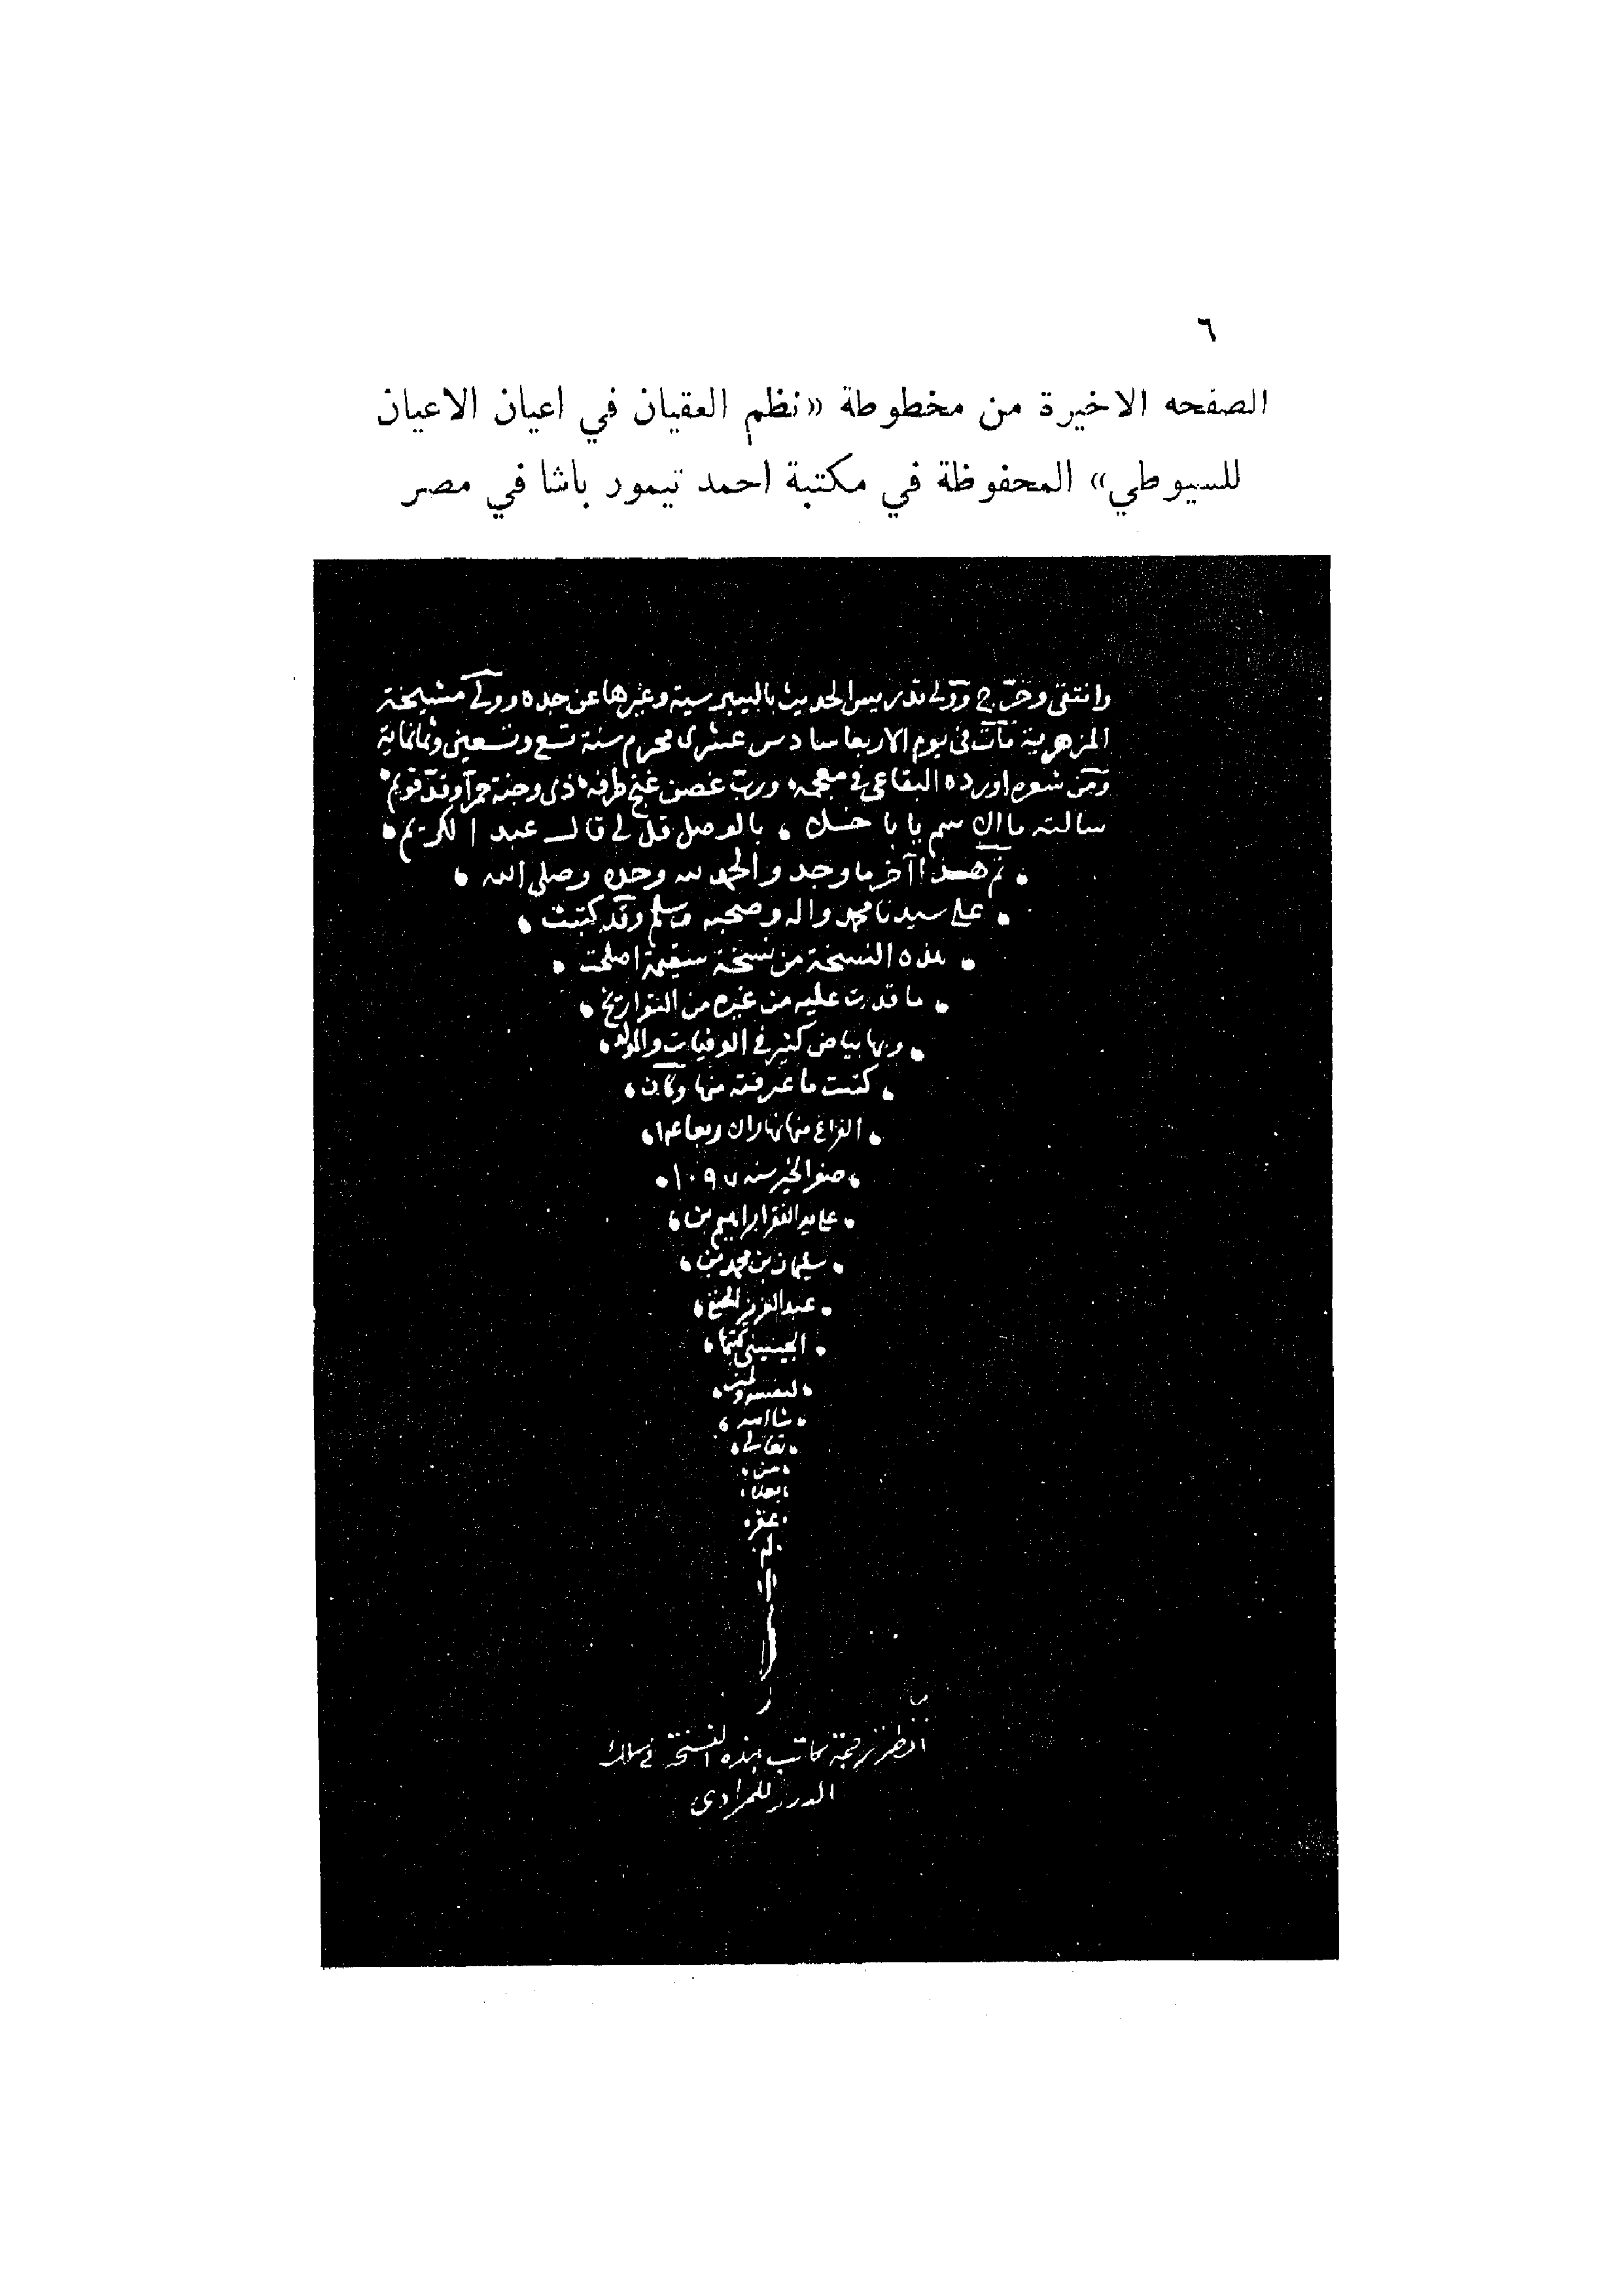 ٦
الصفحه الاخيرة من مخطوطة «نظم العقيان في اعيان الاعيان
للسيوطي» المحفوظة في مكتبة احمد تيمور باشا في مصر
وانتقى وخرّج وولى تدريس الحديث بالبيبرسية وغيرها عن جده وولى مشيخة
المزهرية مات فى يوم الاربعا سادس عشرى محرم سنة تسع وتسعين وثمانماية
ومن شعره اورده البقاعى فى معجمه ورب غصن غنج طرفه ذى وجنة حمرآ وقد قويم
سالته ما الاسم يا باخلا بالوصل قل لى قال عبد الكريم
تم هذا آخر ما وجد والحمد لله وحده وصلى الله
على سيدنا محمد واله وصحبه وسلم وقد كتبت
هذه النسخة من نسخة سقيمة اصلحت
ما قدرت عليه من غيره من التواريخ
وبها بياض كثير فى الوفيات والمولد
كتبت ما عرفته منها وكان
الفراغ منها نهار الاربعا
صفر الخير سنه ١٠٩٧
على يد الفقير ابراهيم بن
سليمان بن محمد بن
عبد العزيز الحنفى
الجينينى كتبها
لنفسه ولمن
شا الله
تعالى
من
بعده
غفر
له
انظر ترجمة كاتب هذه النسخة فى سلك
الدرر للمرادى